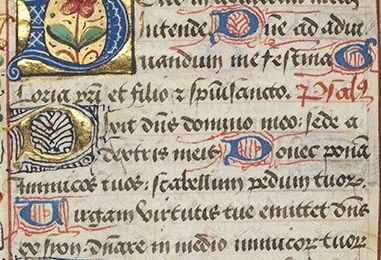 intende Dne ad adiu
uandum me festina G
loria pri et filio ⁊ spiusancto. Psal
Dixit dns domino meo: sede a
dextris meis Donec ponā
inimicos tuos: scabellum pedum tuorꝝ
Uirgam virtutis tue emittet dns
ex syon: dnare in medio inimicorꝝ tuorꝝ